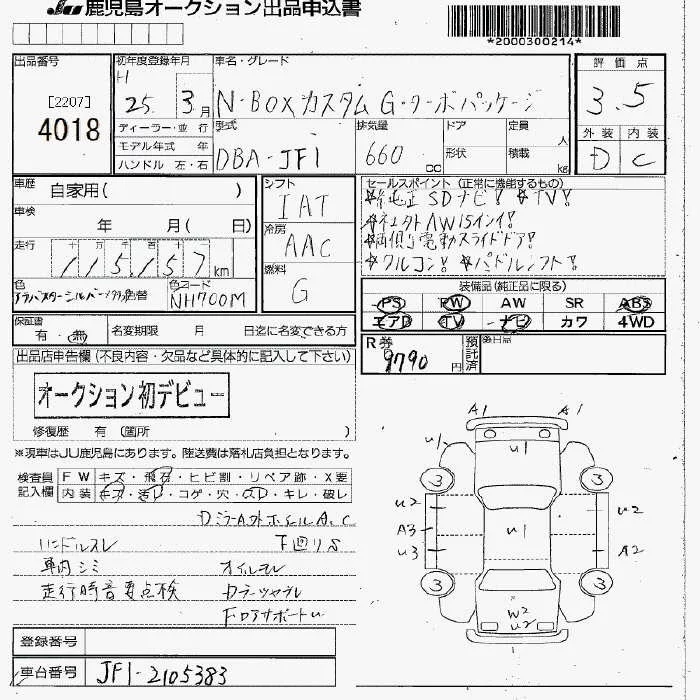 JU 鹿児島オークション出品申込書
*2000300214*
出品番号
[2207]
4018
初年度登録年月
H
25 3月
車名・グレード
N-BOXカスタム G・ターボパッケージ
評価点
3.5
外装 内装
D C
ディーラー・並行
モデル年式 年
ハンドル 左・右
型式
DBA-JF1
排気量
660cc
ドア
形状
定員
人
積載
kg
車歴
自家用( )
車検
年 月( 日)
走行
115,157km
色
カラーコード
NH700M
シフト
IAT
冷房
AAC
燃料
G
セールスポイント (正常に機能するもの)
☆純正SDナビ! ☆TV!
AW15インチ!
☆両側電動スライドドア!
☆クルコン! ☆パドルシフト!
装備品(純正品に限る)
PS PW AW SR ABS
エアB TV ナビ カワ 4WD
保証書
有・無
名変期限 月 日迄に名変できる方
R券
9790円
預託済
後日品
出品店申告欄(不良内容・欠品など具体的に記入して下さい)
オークション初デビュー
修復歴 有(箇所 )
※現車はJU鹿児島にあります。陸送費は落札店負担となります。
検査員
記入欄
FW キズ・飛石・ヒビ割・リペア跡・X要
内装 キズ・汚レ・コゲ・穴・スレ・キレ・破レ
ハンドルスレ
下回りS
車内シミ
オイルモレ
走行時音要点検
FドアサポートU
登録番号
車台番号
JF1-2105383
A1 A1
U1 U1
3 3
U2 U2
A3 U1
U3 A2
3 3
W2
U2
1